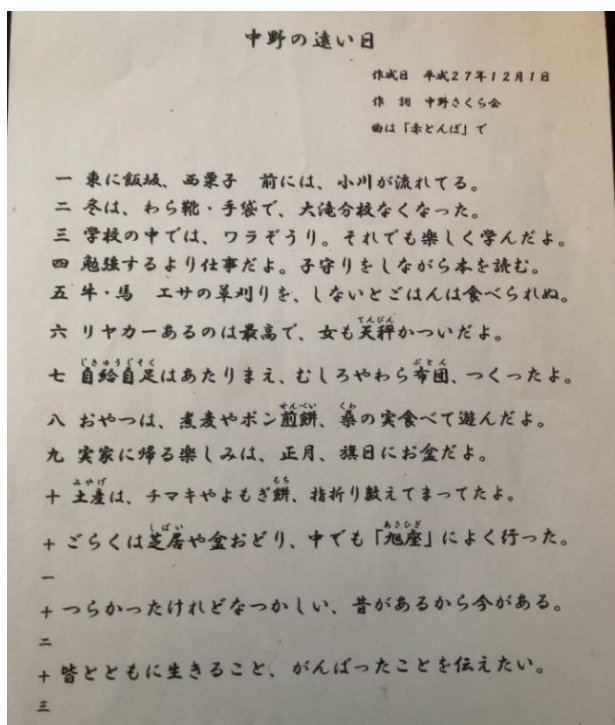 中野の遠い日
作成日 平成27年12月1日
作 詞 中野さくら会
曲は「赤とんぼ」で
一 東に飯坂、西栗子 前には、小川が流れてる。
二 冬は、わら靴・手袋で、大滝分校なくなった。
三 学校の中では、ワラぞうり。それでも楽しく学んだよ。
四 勉強するより仕事だよ。子守りをしながら本を読む。
五 牛・馬 エサの草刈りを、しないとごはんは食べられぬ。
てんびん
六 リヤカーあるのは最高で、女も天秤かついだよ。
じきゅうじそく ぶとん
七 自給自足はあたりまえ、むしろやわら布団、つくったよ。
せんべい くわ
八 おやつは、煮麦やポン煎餅、桑の実食べて遊んだよ。
九 実家に帰る楽しみは、正月、旗日にお盆だよ。
みやげ もち
十 土産は、チマキやよもぎ餅、指折り数えてまってたよ。
しばい あさひざ
十 ごらくは芝居や盆おどり、中でも「旭座」によく行った。
一
十 つらかったけれどなつかしい、昔があるから今がある。
二
十 皆とともに生きること、がんばったことを伝えたい。
三